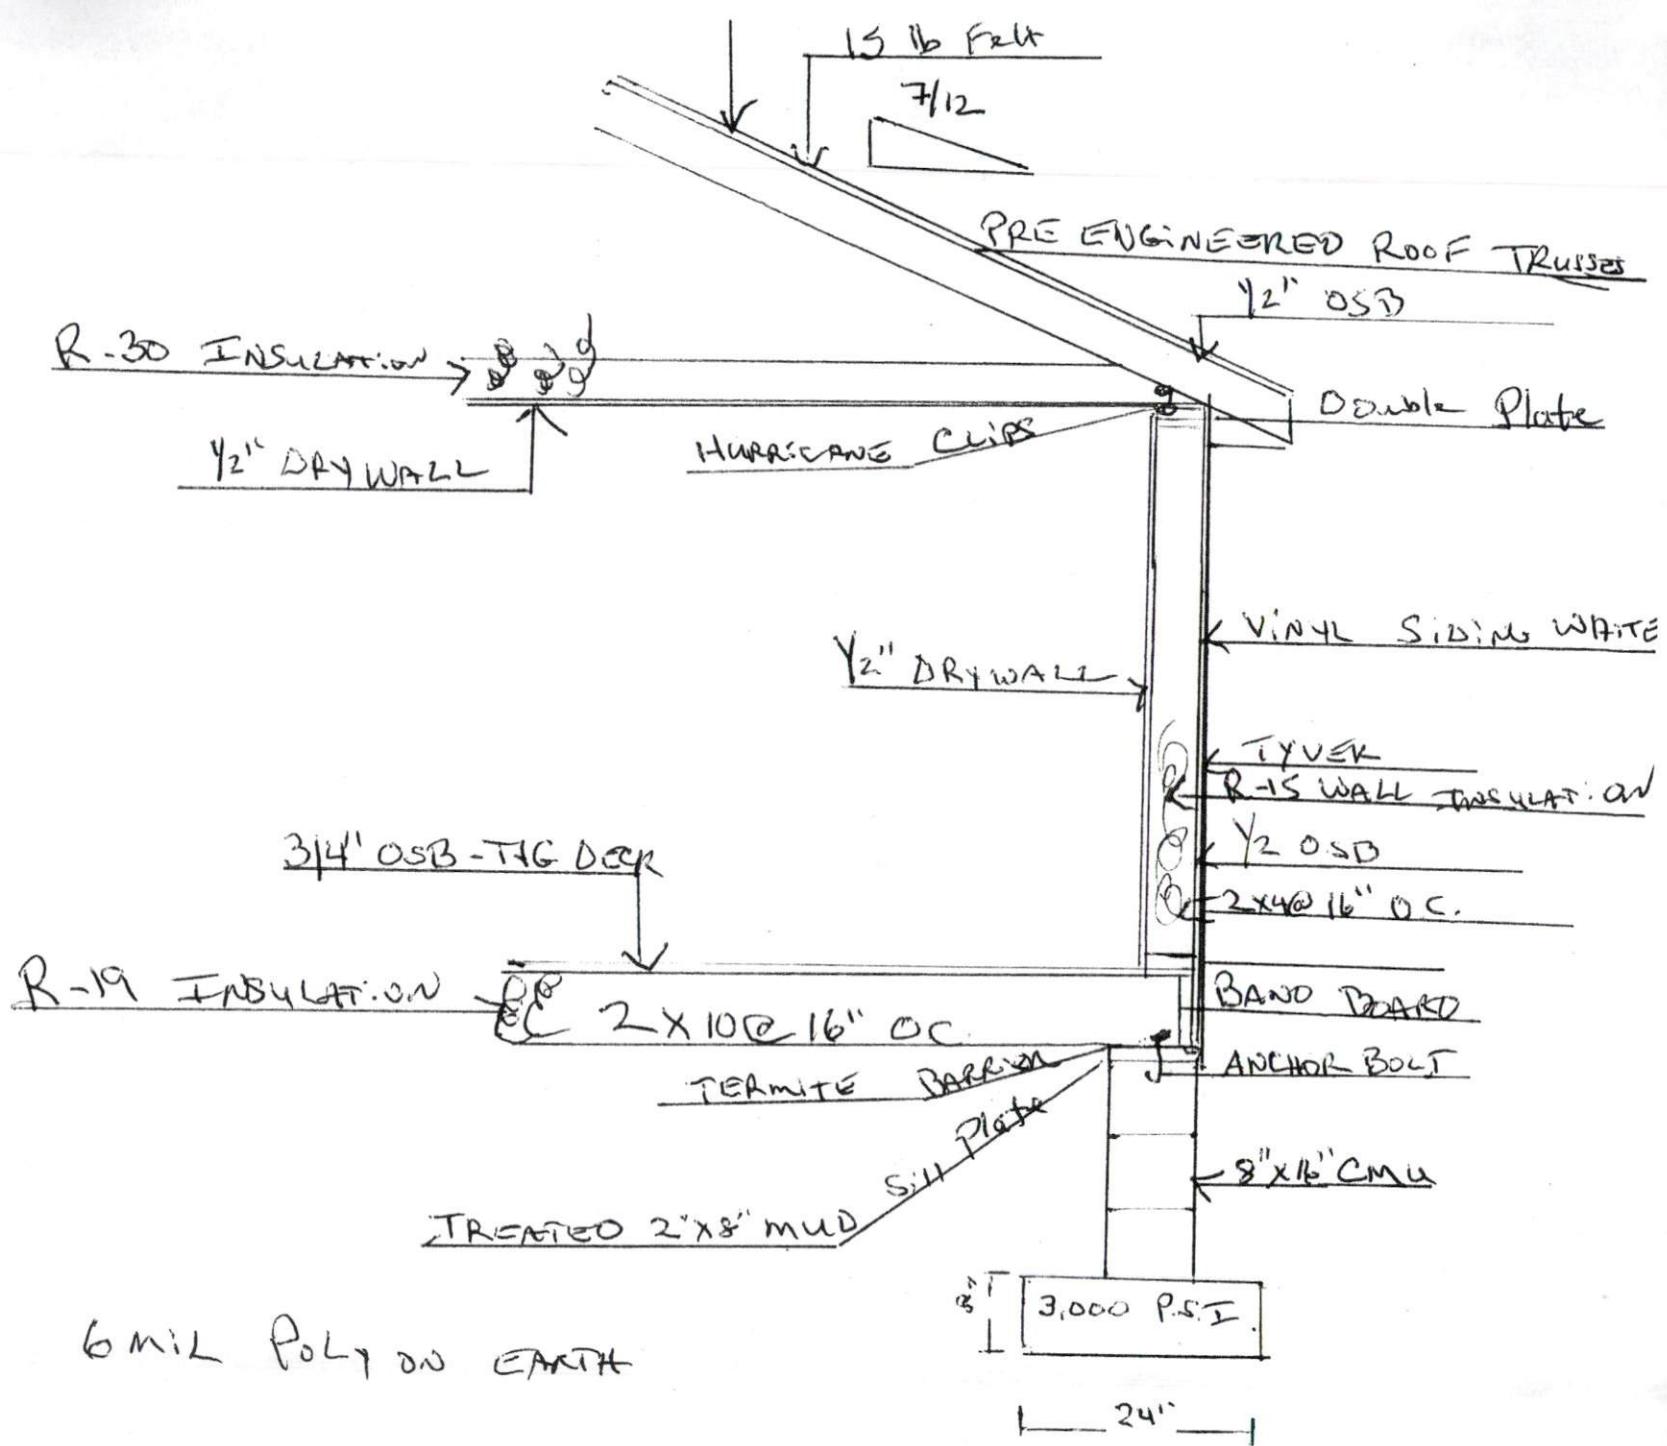 15 lb Felt
7/12
PRE ENGINEERED ROOF TRUSSES
1/2" OSB
R-30 INSULATION
Double Plate
HURRICANE CLIPS
1/2" DRYWALL
VINYL SIDING WHITE
1/2" DRYWALL
TYVEK
R-15 WALL INSULATION
3/4" OSB-T&G DECK
1/2 OSB
2x4@ 16" OC.
R-19 INSULATION
2 X 10@ 16" OC
BAND BOARD
ANCHOR BOLT
TERMITE BARRIER
Sill Plate
8"X16" CMU
TREATED 2"X8" MUD
8"
3,000 P.S.I.
6 MIL POLY ON EARTH
24"